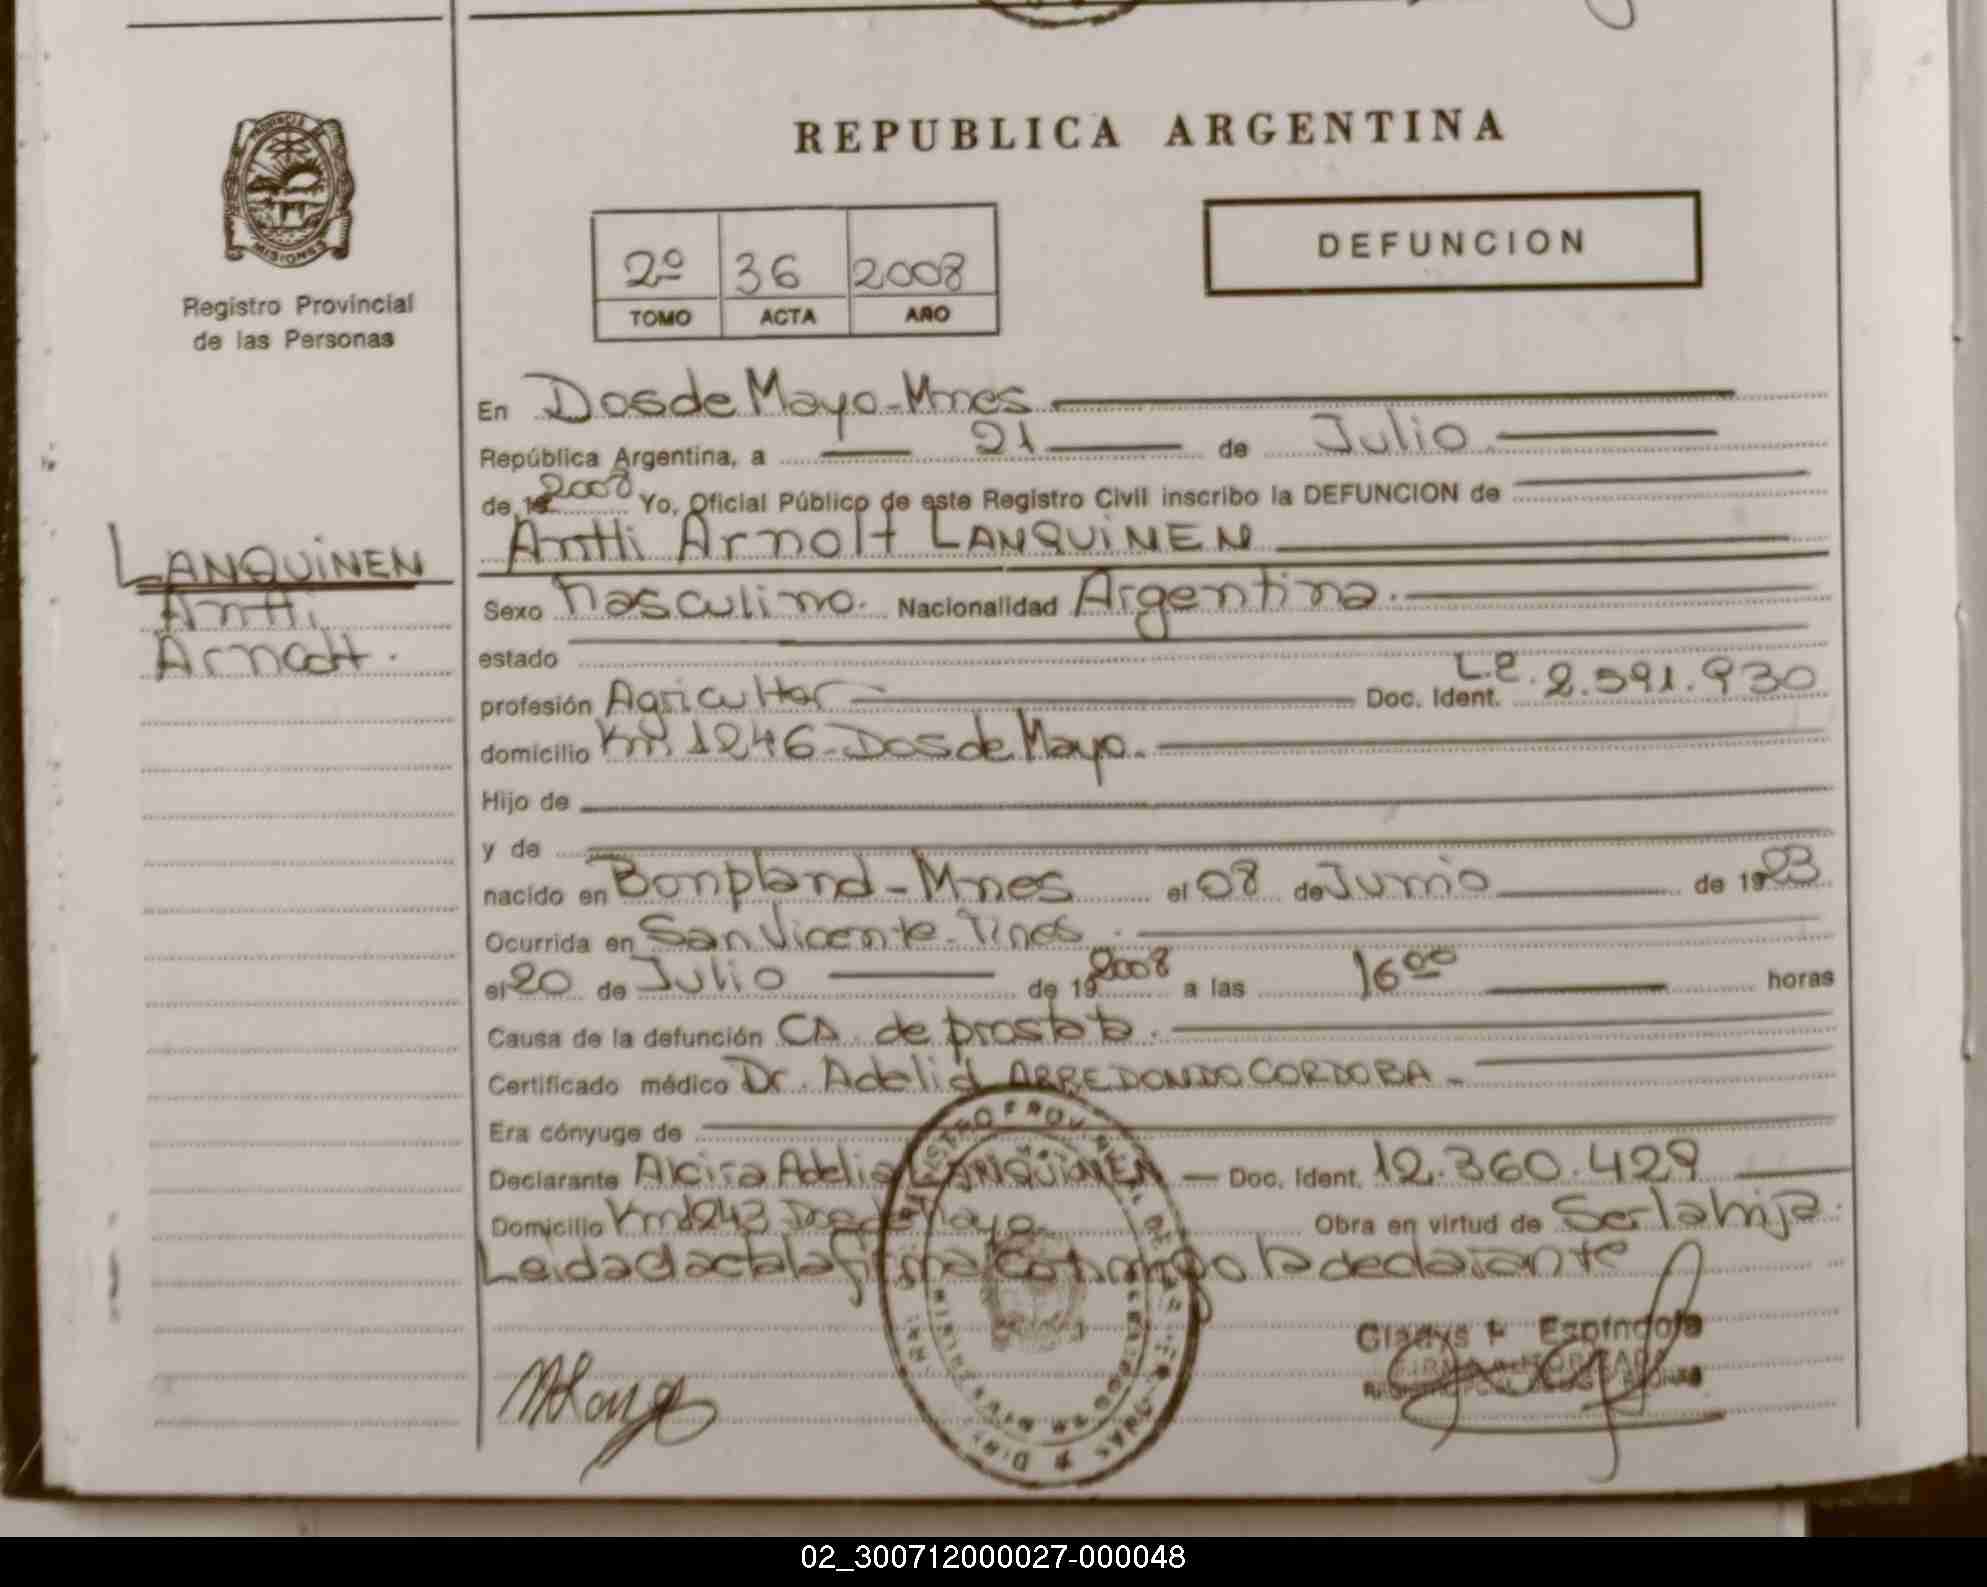 REPUBLICA ARGENTINA
MISIONES
Registro Provincial
de las Personas
2º 36 2008
TOMO ACTA AÑO
DEFUNCION
En Dos de Mayo - Mnes
República Argentina, a 21 de Julio
de 19 2008 Yo, Oficial Público de este Registro Civil inscribo la DEFUNCION de
Antti Arnolt LANQUINEN
LANQUINEN
Antti
Arnolt.
Sexo Masculino. Nacionalidad Argentina.
estado
profesión Agricultor Doc. Ident. L.E. 2.591.930
domicilio Km 1246 - Dos de Mayo.
Hijo de
y de
nacido en Bonpland - Mnes el 08 de Junio de 19 23
Ocurrida en San Vicente - Mnes
el 20 de Julio de 19 2008 a las 16 00 horas
Causa de la defunción CA. de prostata.
Certificado médico Dr. Adelid ARREDONDO CORDOBA -
Era cónyuge de
Declarante Alcira Adelia LANQUINEN - Doc. Ident. 12.360.429
Domicilio Km 1243 Dos de Mayo Obra en virtud de Ser la hija.
Leida el acta la firma conmigo la declarante
Gladys Espindola
FIRMA AUTORIZADA
02_300712000027-000048